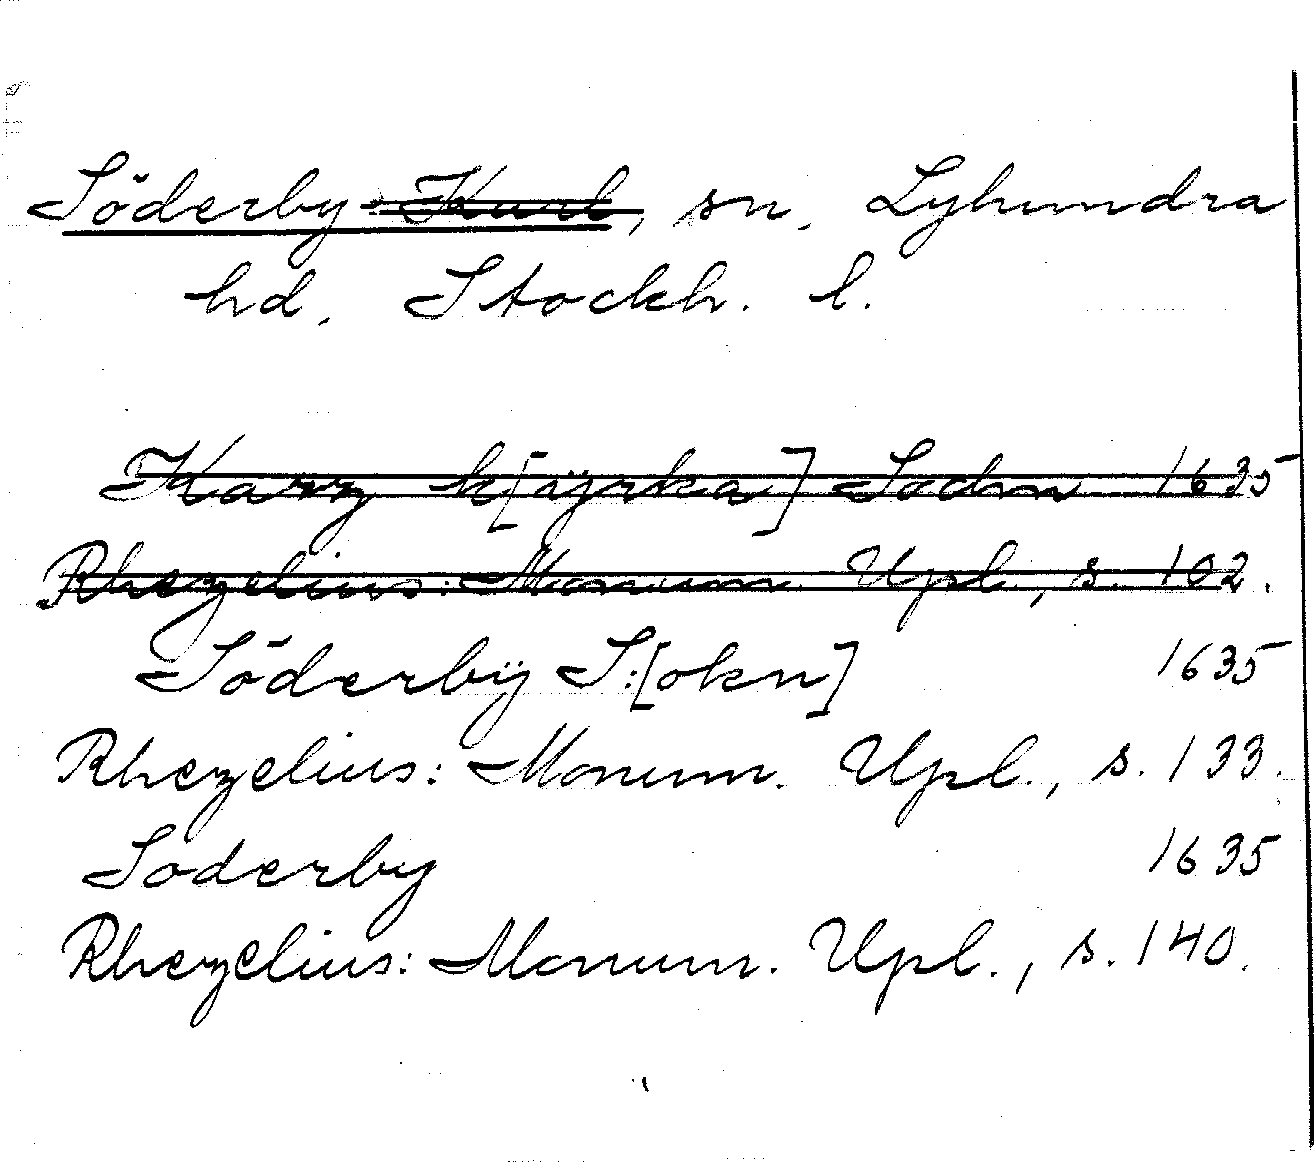 Söderby-Karl, sn. Lyhundra
hd. Stockh. l.
Karz k[ÿrka] Sochn 1635
Rhezelius: Monum. Upl., s. 102.
Söderbÿ S:[okn] 1635
Rhezelius: Monum. Upl., s. 133.
Soderby 1635
Rhezelius: Monum. Upl., s. 140.